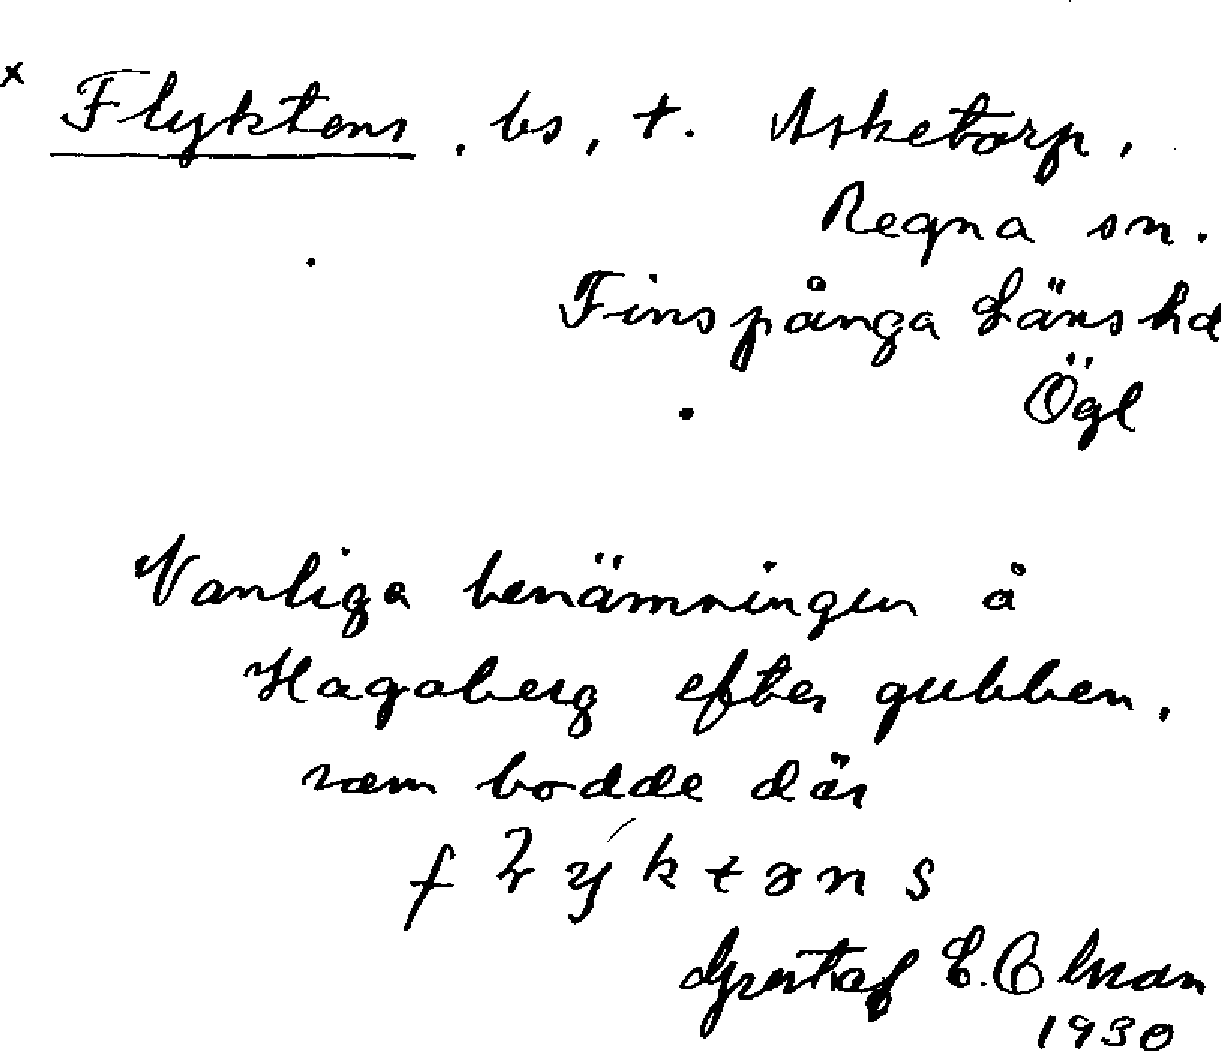 x Flyktens, bs, t. Asketorp,
Regna sn.
Finspånga Länshd
Ögl
Vanliga benämningen å
Hagaberg efter gubben,
som bodde där
Gustaf E.
1930